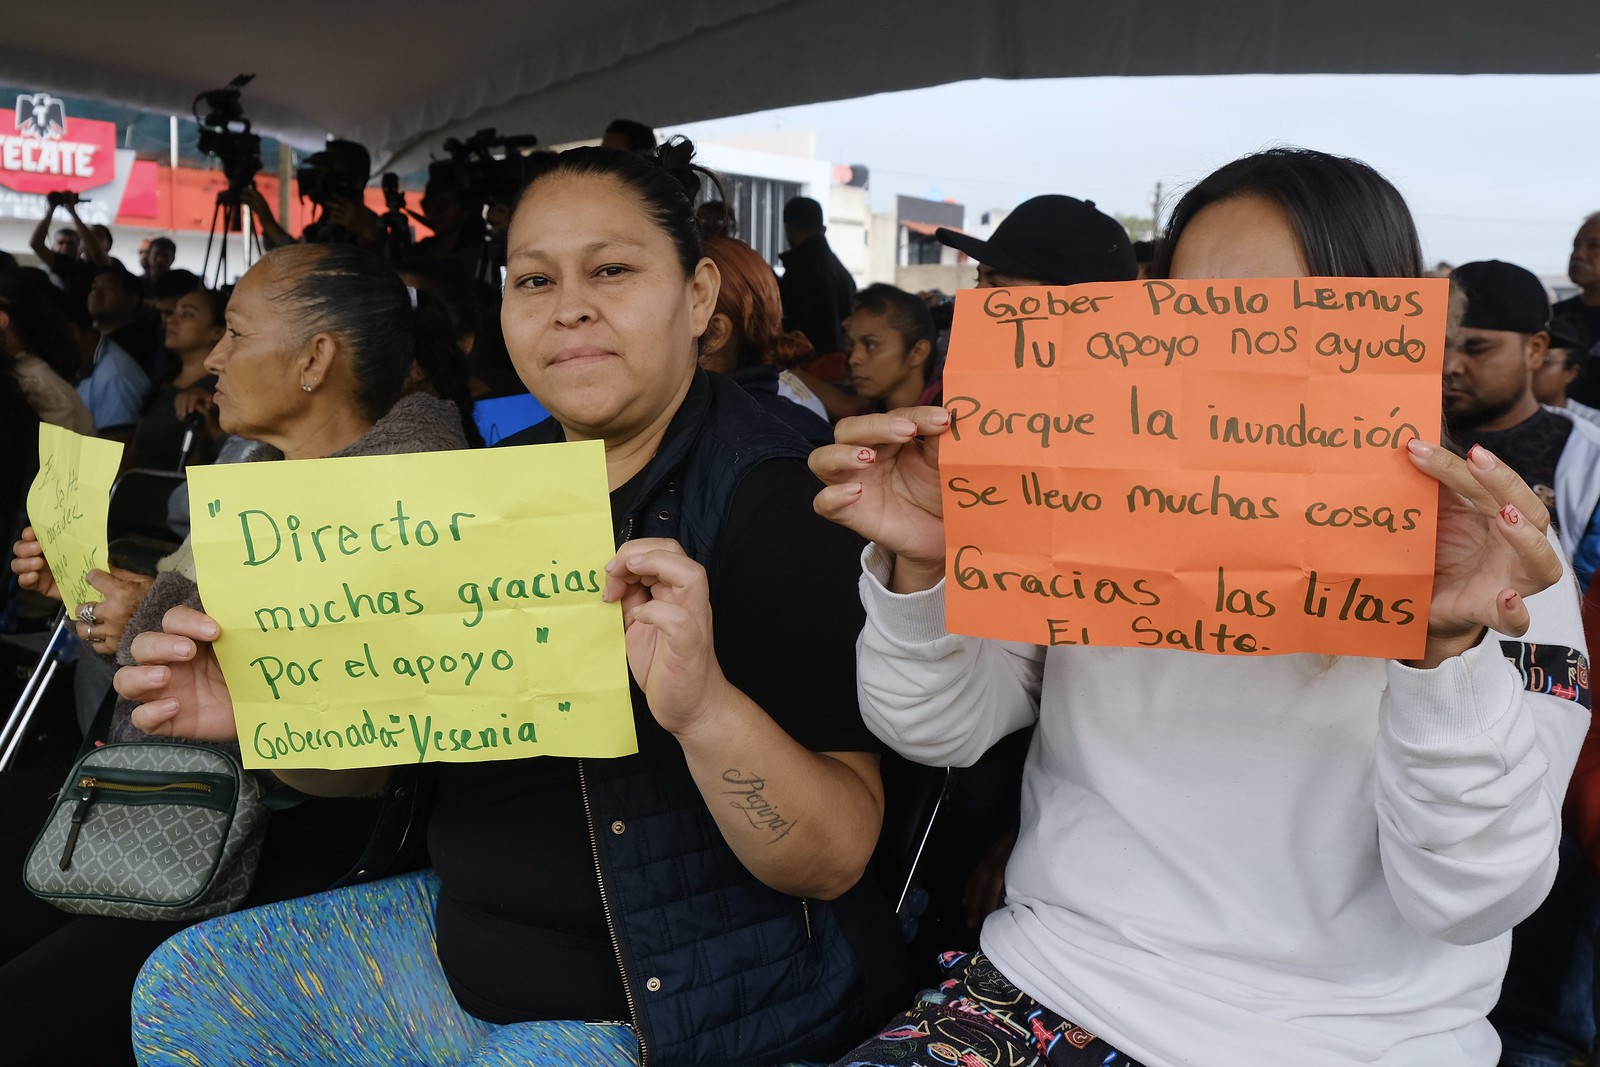 TECATE
"Director
muchas gracias
por el apoyo"
Gobernador "Yesenia"
Gober Pablo Lemus
Tu apoyo nos ayudo
Porque la inundación
se llevo muchas cosas
Gracias las lilas
El Salto.
Regina